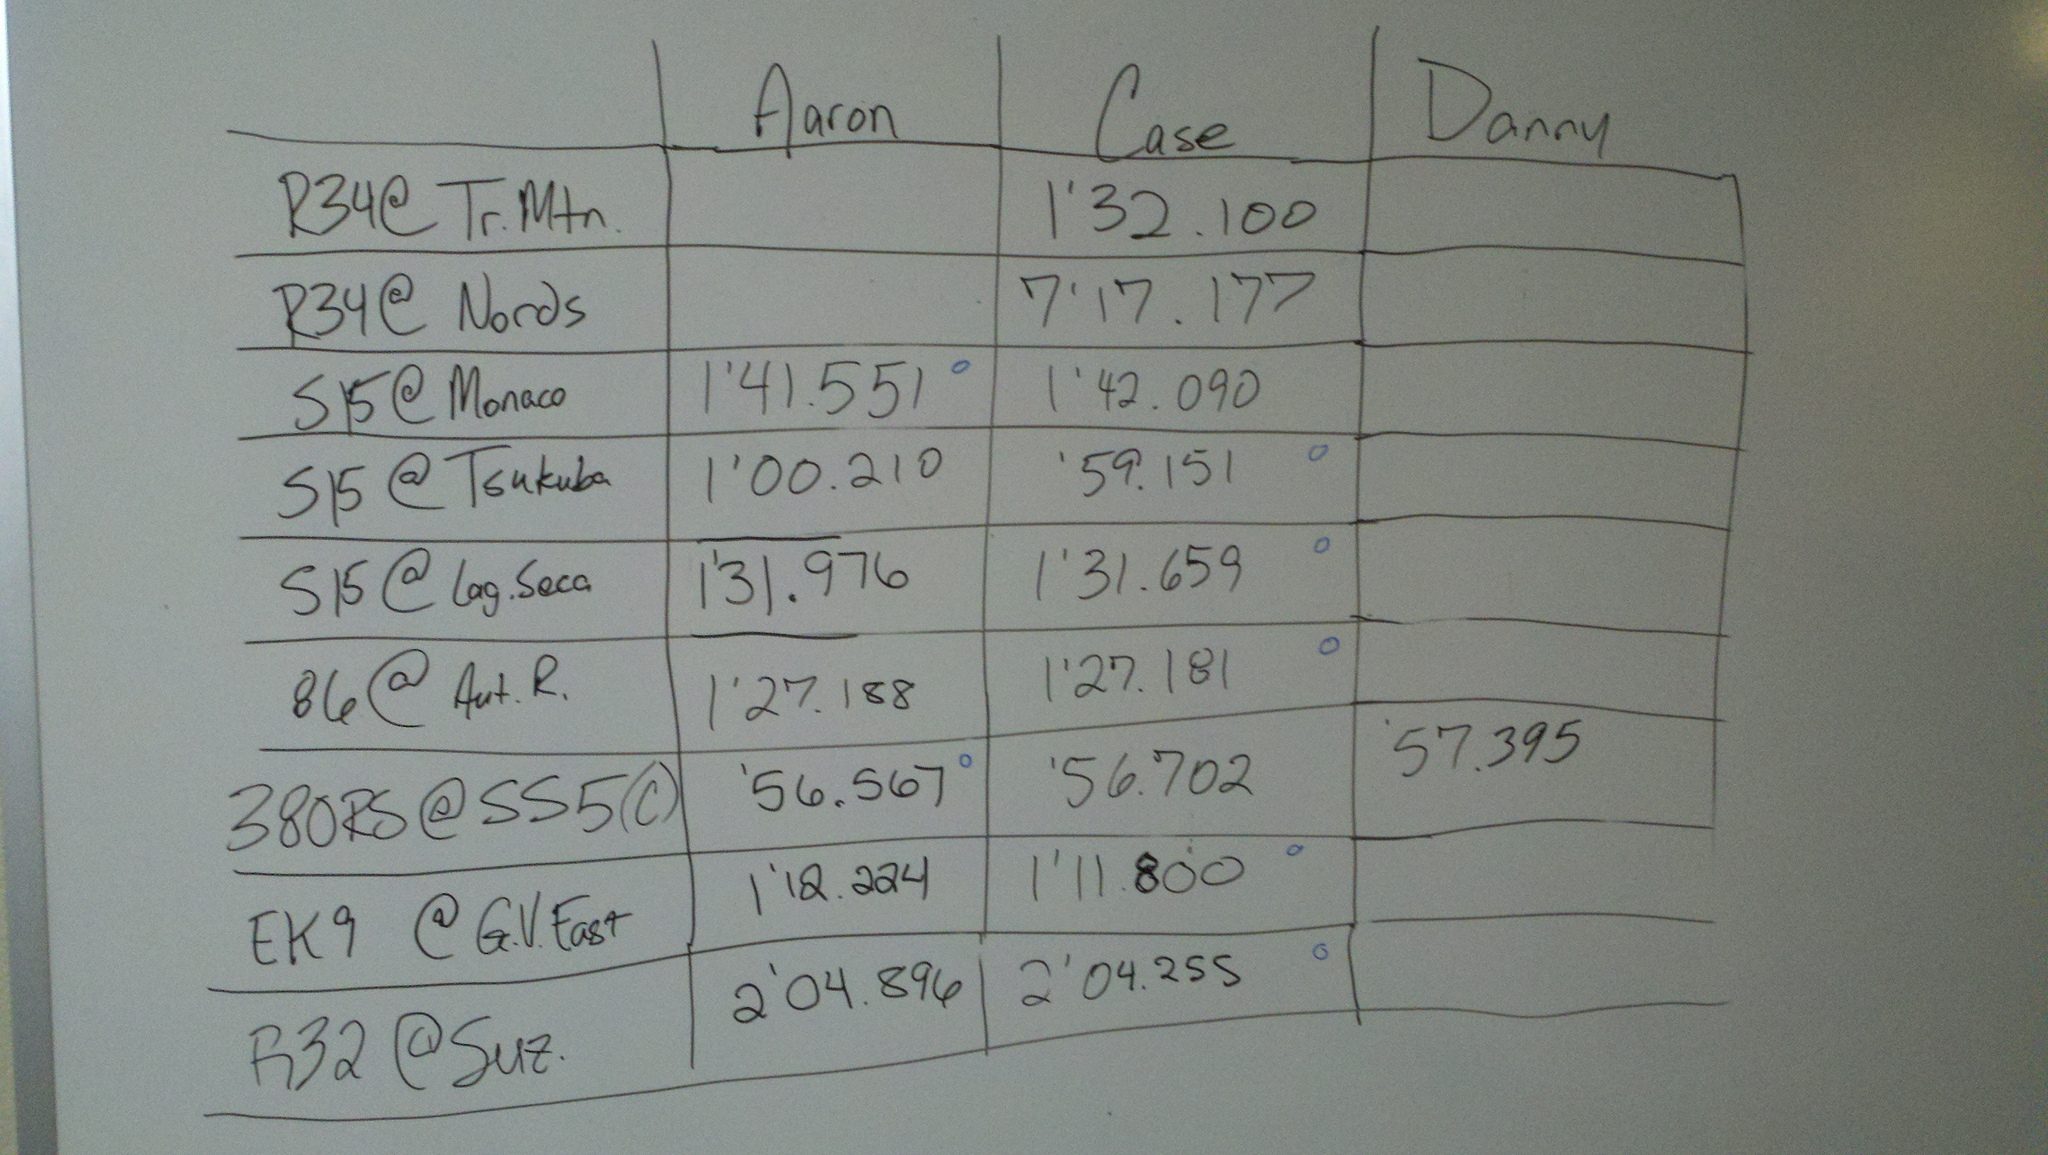 Aaron Case Danny
R34@ Tr.Mtn. 1'32.100
R34@ Nords 7'17.177
S15@Monaco 1'41.551 1'42.090
S15@Tsukuba 1'00.210 '59.151
S15@Lag.Seca 1'31.976 1'31.659
86@Aut.R. 1'27.188 1'27.181
380RS@SS5(C) '56.567 '56.702 '57.395
EK9 @G.V.East 1'12.224 1'11.800
R32@Suz. 2'04.896 2'04.255